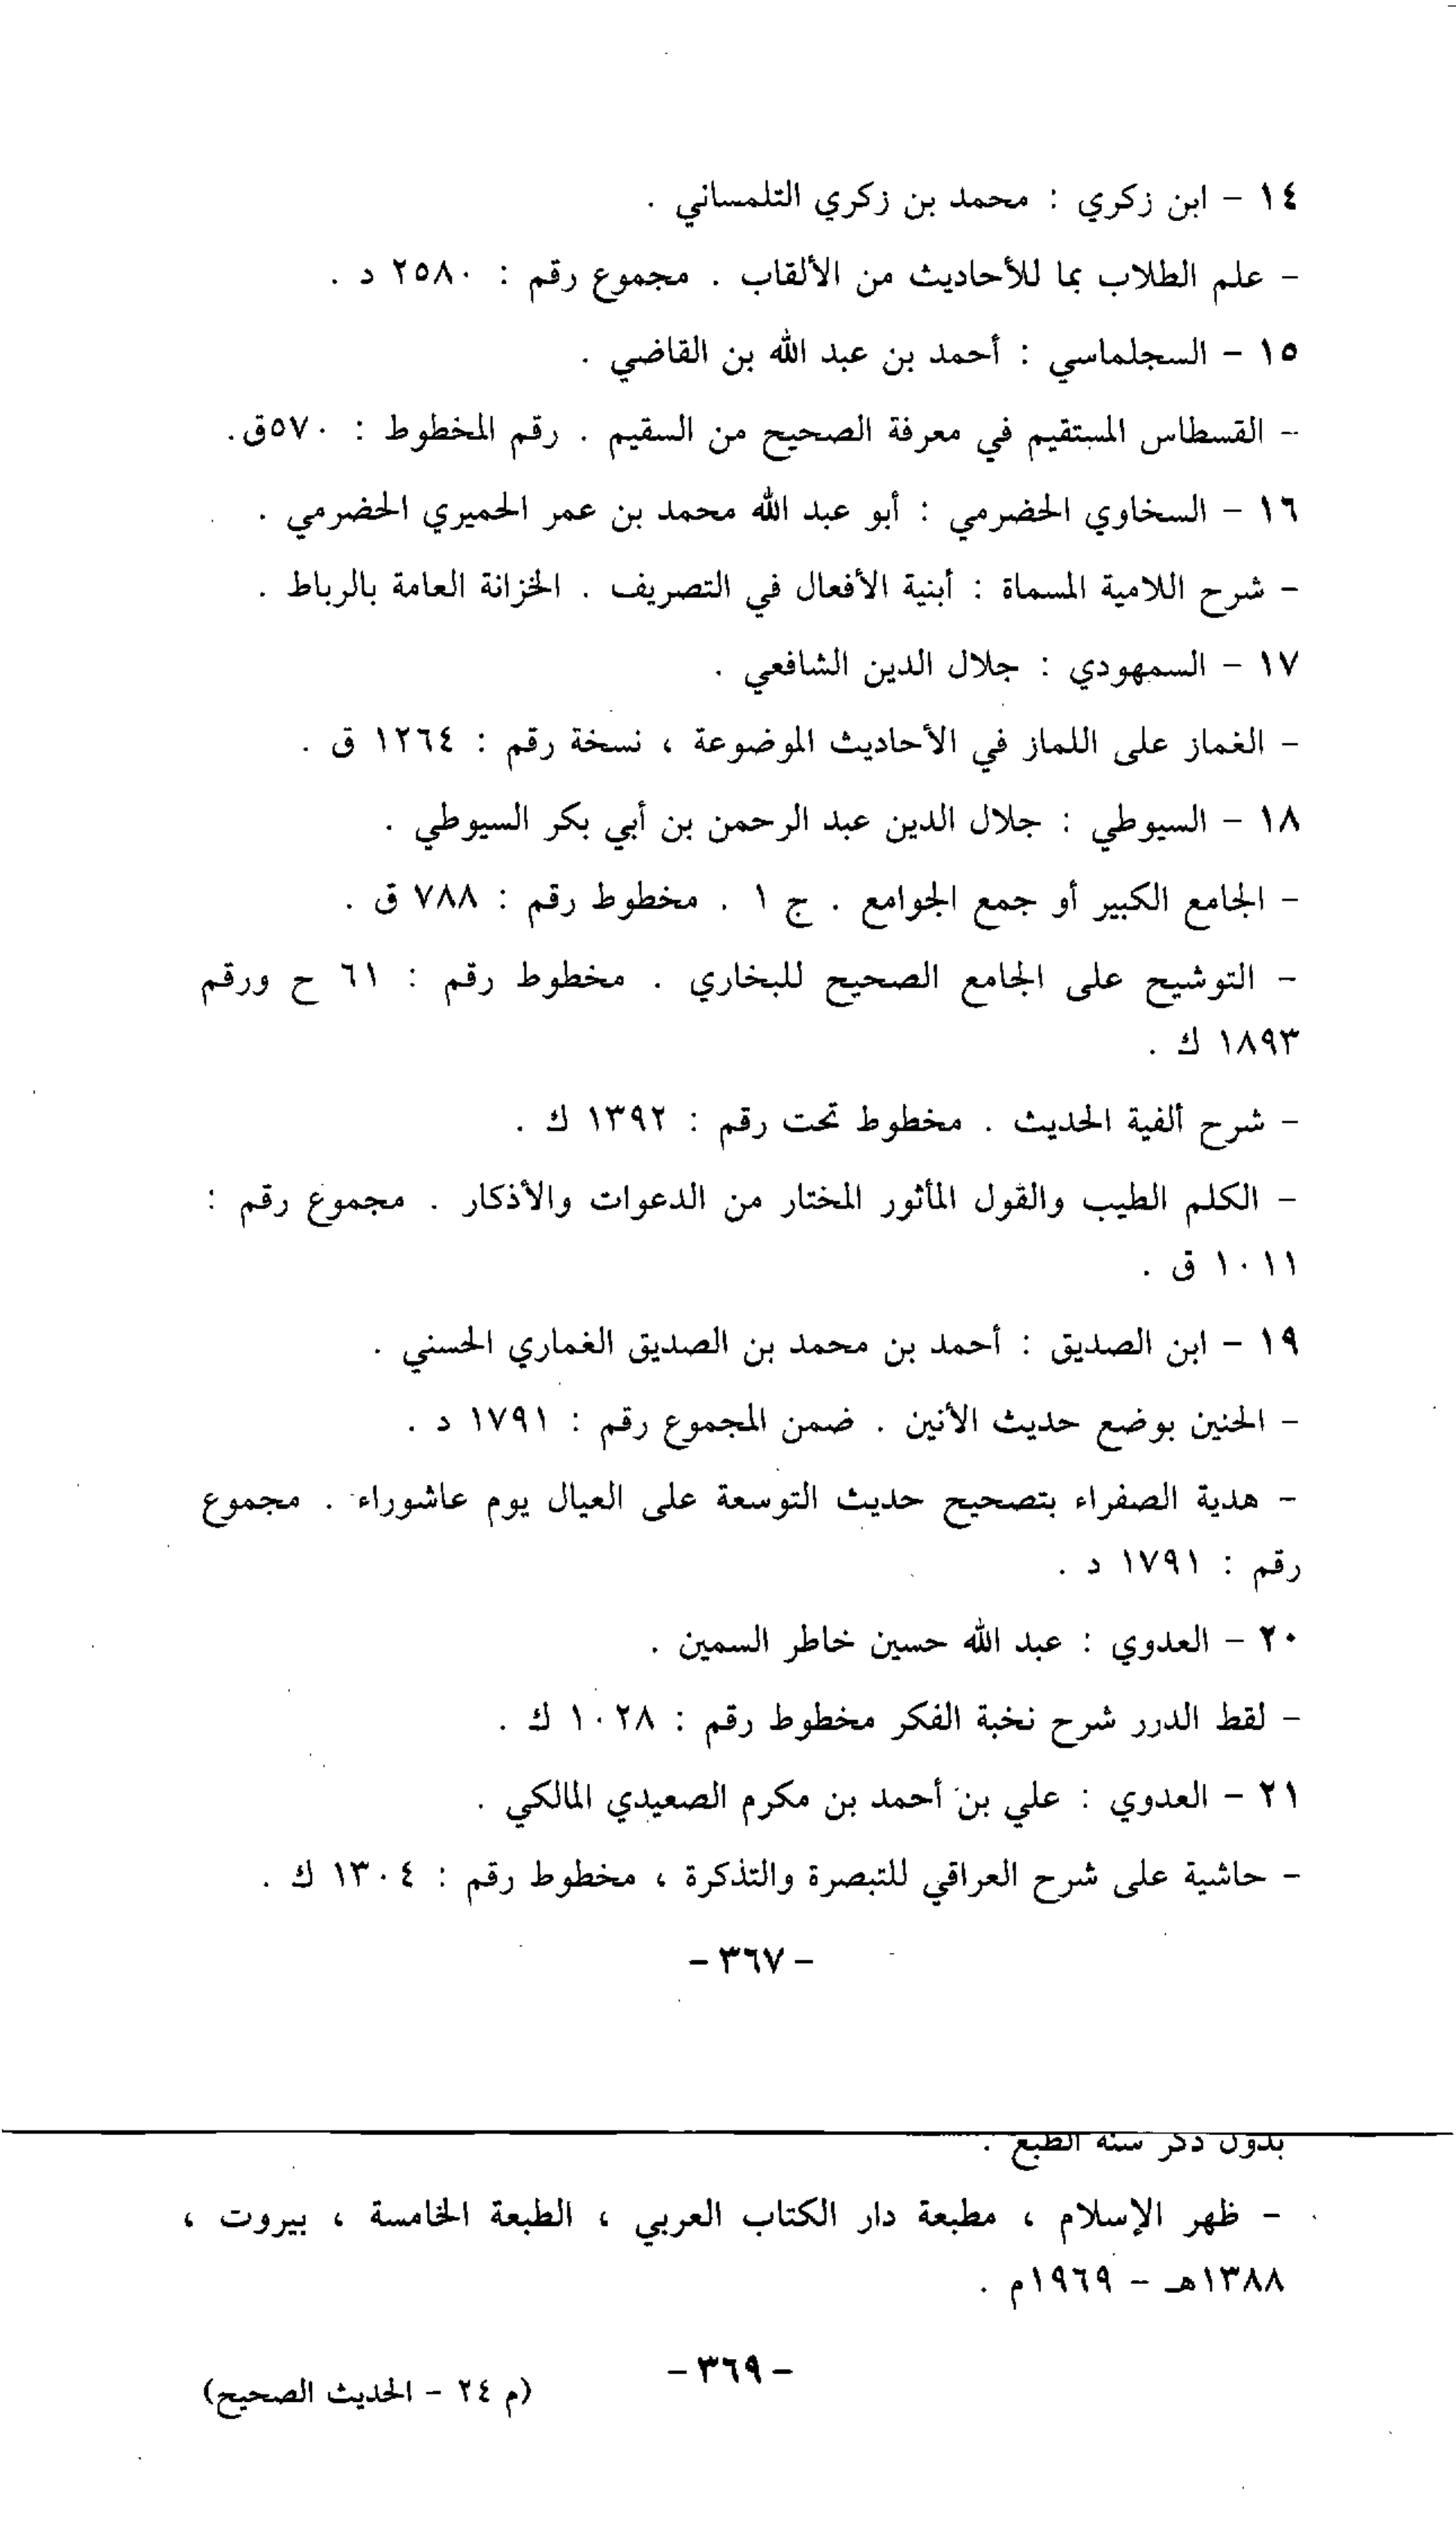 ١٤ - ابن زكري : محمد بن زكري التلمساني .
- علم الطلاب بما للأحاديث من الألقاب . مجموع رقم : ٢٥٨٠ د .
١٥ - السجلماسي : أحمد بن عبد الله بن القاضي .
- القسطاس المستقيم في معرفة الصحيح من السقيم . رقم المخطوط : ٥٧٠ق.
١٦ - السخاوي الحضرمي : أبو عبد الله محمد بن عمر الحميري الحضرمي .
- شرح اللامية المسماة : أبنية الأفعال في التصريف . الخزانة العامة بالرباط .
١٧ - السمهودي : جلال الدين الشافعي .
- الغماز على اللماز في الأحاديث الموضوعة ، نسخة رقم : ١٢٦٤ ق .
١٨ - السيوطي : جلال الدين عبد الرحمن بن أبي بكر السيوطي .
- الجامع الكبير أو جمع الجوامع . ج ١ . مخطوط رقم : ٧٨٨ ق .
- التوشيح على الجامع الصحيح للبخاري . مخطوط رقم : ٦١ ح ورقم
١٨٩٣ ك .
- شرح ألفية الحديث . مخطوط تحت رقم : ١٣٩٢ ك .
- الكلم الطيب والقول المأثور المختار من الدعوات والأذكار . مجموع رقم :
١٠١١ ق .
١٩ - ابن الصديق : أحمد بن محمد بن الصديق الغماري الحسني .
- الحنين بوضع حديث الأنين . ضمن المجموع رقم : ١٧٩١ د .
- هدية الصفراء بتصحيح حديث التوسعة على العيال يوم عاشوراء . مجموع
رقم : ١٧٩١ د .
٢٠ - العدوي : عبد الله حسين خاطر السمين .
- لقط الدرر شرح نخبة الفكر مخطوط رقم : ١٠٢٨ ك .
٢١ - العدوي : علي بن أحمد بن مكرم الصعيدي المالكي .
- حاشية على شرح العراقي للتبصرة والتذكرة ، مخطوط رقم : ١٣٠٤ ك .
- ٣٦٧ -
بدون ذكر سنة الطبع .
- ظهر الإسلام ، مطبعة دار الكتاب العربي ، الطبعة الخامسة ، بيروت ،
١٣٨٨هـ - ١٩٦٩م .
- ٣٦٩ -
(م ٢٤ - الحديث الصحيح)